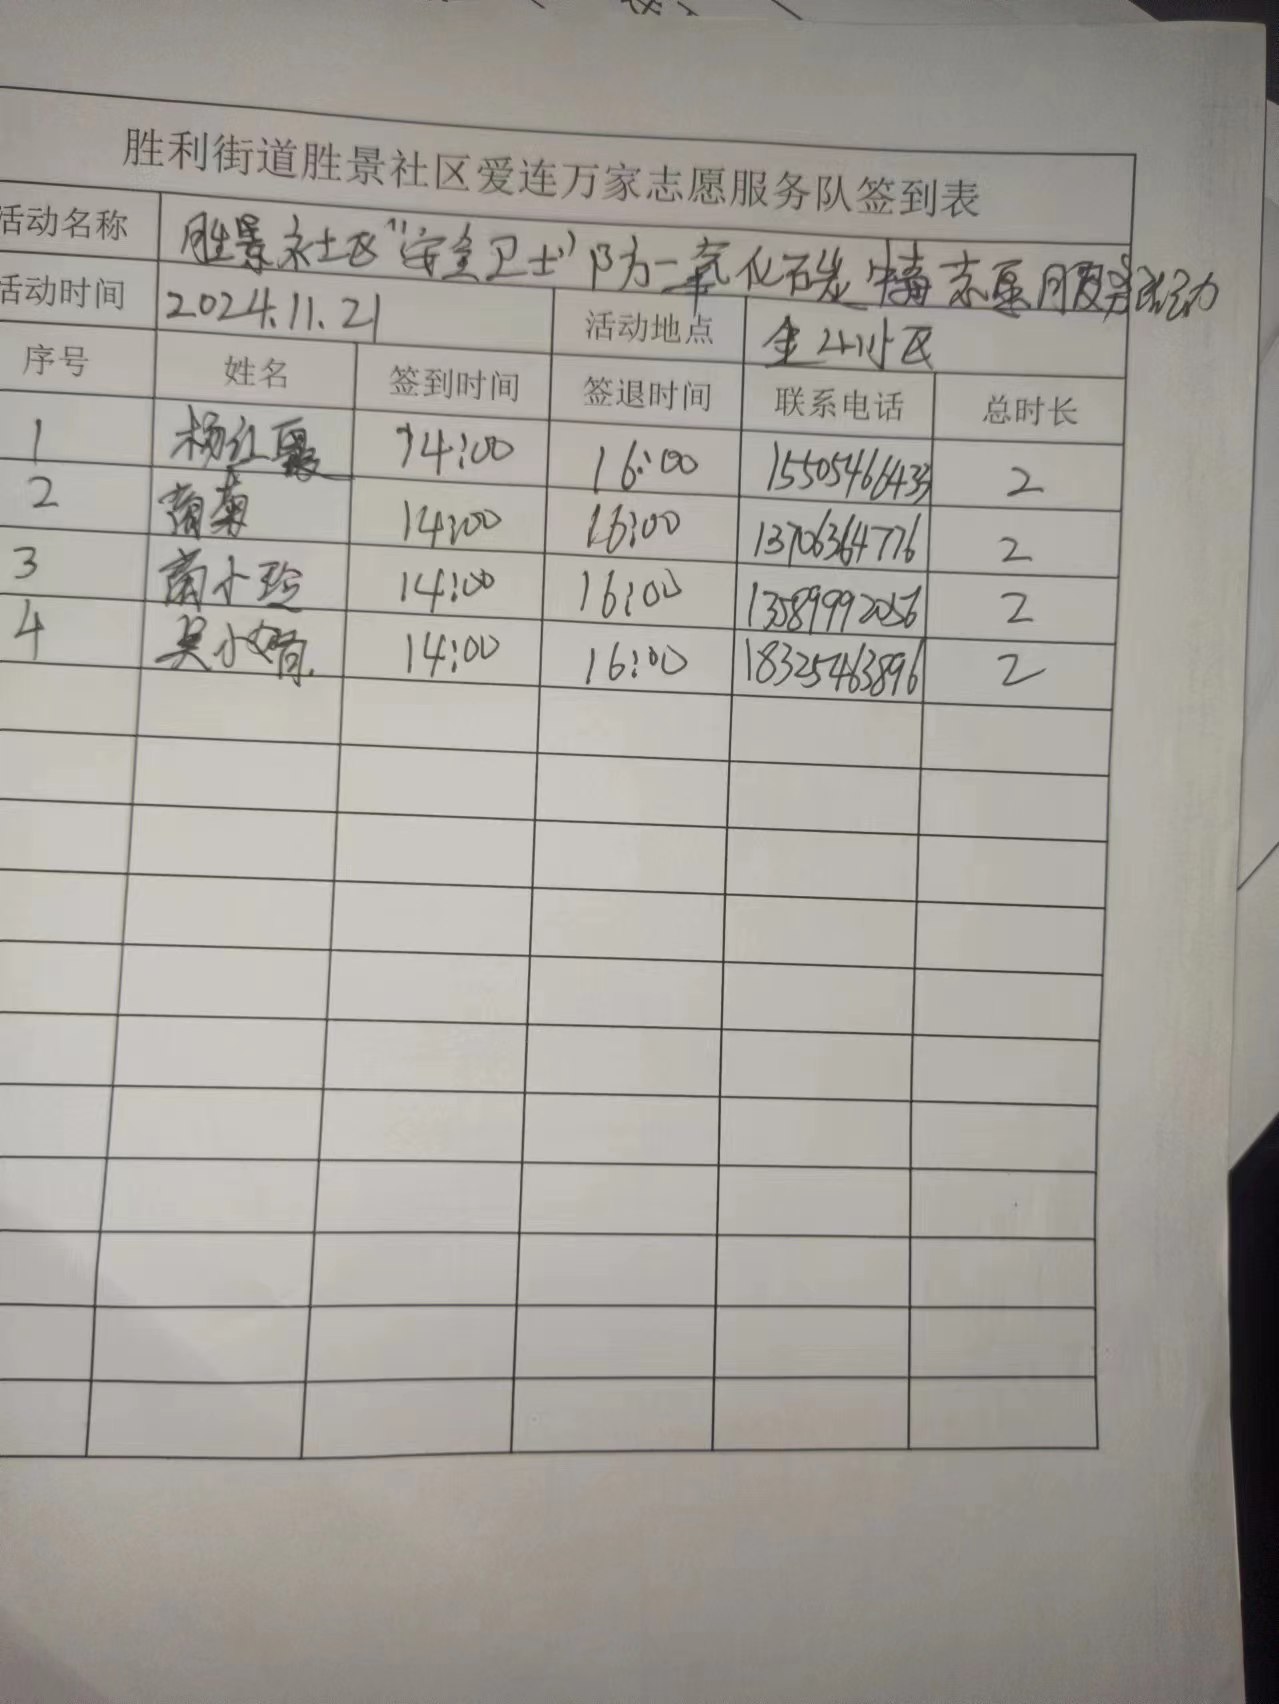 胜利街道胜景社区爱连万家志愿服务队签到表
活动名称 胜景社区“安全卫士”防为一氧化石炭中毒志愿服务活动
活动时间 2024.11.21 活动地点 小区
序号 姓名 签到时间 签退时间 联系电话 总时长
1 杨红霞 14:00 16:00 15505466433 2
2 菊 14:00 16:00 13706364776 2
3 小玲 14:00 16:00 13589992056 2
4 吴小婧 14:00 16:00 18325463896 2